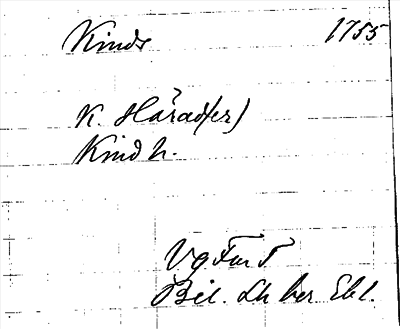 Kinds 1755
K. Härad(er)
Kind h.
Vg Fur T
Bil. Lh ber Ebl.